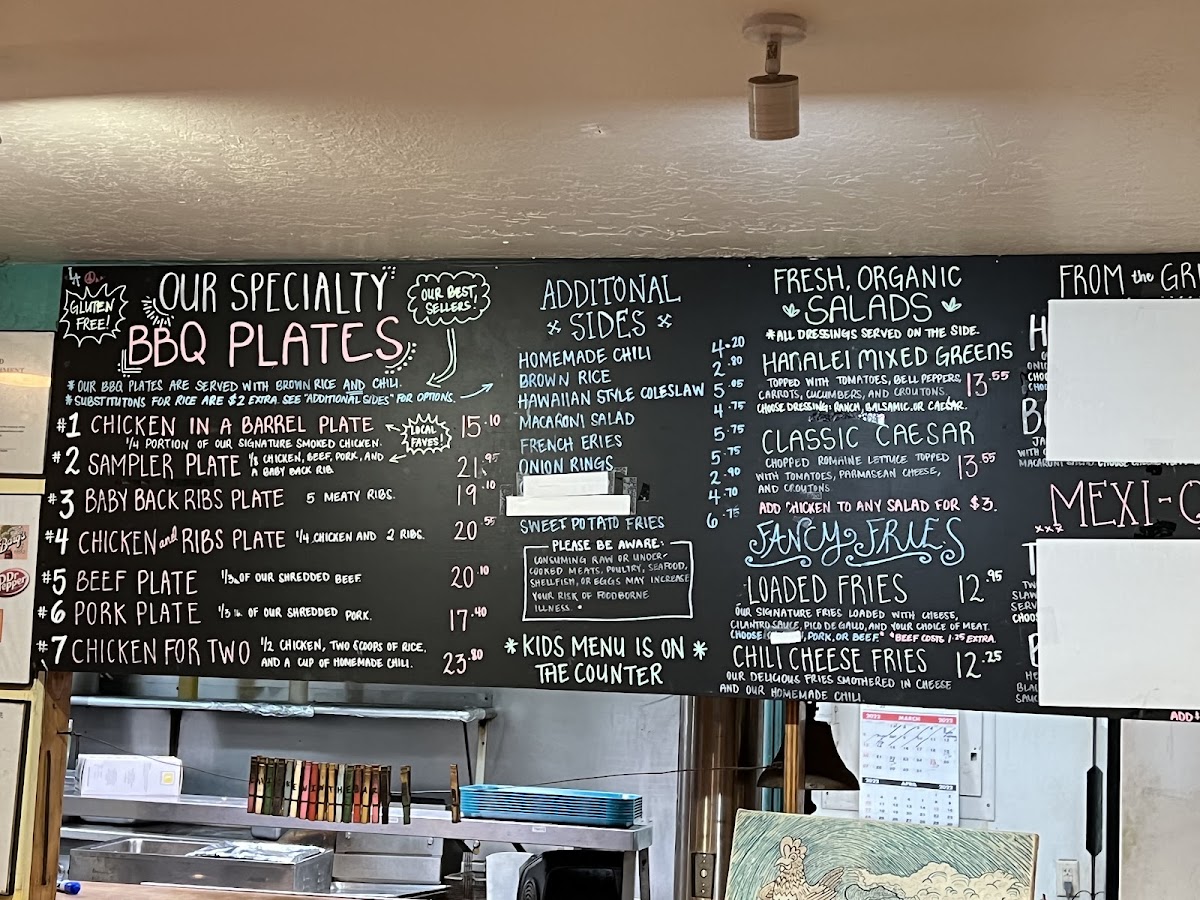 GLUTEN
FREE!
OUR SPECIALTY
BBQ PLATES
OUR BEST
SELLERS!
*OUR BBQ PLATES ARE SERVED WITH BROWN RICE AND CHILI.
*SUBSTITUTIONS FOR RICE ARE $2 EXTRA. SEE "ADDITIONAL SIDES" FOR OPTIONS.
#1 CHICKEN IN A BARREL PLATE 15.10
LOCAL
FAVES!
1/4 PORTION OF OUR SIGNATURE SMOKED CHICKEN.
#2 SAMPLER PLATE 1/8 CHICKEN, BEEF, PORK, AND 21.95
A BABY BACK RIB
#3 BABY BACK RIBS PLATE 5 MEATY RIBS. 19.10
#4 CHICKEN and RIBS PLATE 1/4 CHICKEN AND 2 RIBS. 20.55
#5 BEEF PLATE 1/3 lb OF OUR SHREDDED BEEF 20.10
#6 PORK PLATE 1/3 lb. OF OUR SHREDDED PORK. 17.40
#7 CHICKEN FOR TWO 1/2 CHICKEN, TWO SCOOPS OF RICE, 23.80
AND A CUP OF HOMEMADE CHILI.
ADDITONAL
SIDES
HOMEMADE CHILI 4.20
BROWN RICE 2.80
HAWAIIAN STYLE COLESLAW 5.05
MACARONI SALAD 4.75
FRENCH FRIES 5.75
ONION RINGS 5.75
2.90
4.70
SWEET POTATO FRIES 6.75
PLEASE BE AWARE:
CONSUMING RAW OR UNDER-
COOKED MEATS, POULTRY, SEAFOOD,
SHELLFISH, OR EGGS MAY INCREASE
YOUR RISK OF FOODBORNE
ILLNESS.
*KIDS MENU IS ON *
THE COUNTER
FRESH, ORGANIC
SALADS
*ALL DRESSINGS SERVED ON THE SIDE.
HANALEI MIXED GREENS
TOPPED WITH TOMATOES, BELL PEPPERS, 13.55
CARROTS, CUCUMBERS, AND CROUTONS.
CHOOSE DRESSING: RANCH, BALSAMIC, OR CAESAR.
CLASSIC CAESAR
CHOPPED ROMAINE LETTUCE TOPPED 13.55
WITH TOMATOES, PARMASEAN CHEESE,
AND CROUTONS
ADD CHICKEN TO ANY SALAD FOR $3.
FANCY FRIES
LOADED FRIES 12.95
OUR SIGNATURE FRIES LOADED WITH CHEESE,
CILANTRO SAUCE, PICO DE GALLO, AND YOUR CHOICE OF MEAT.
CHOOSE PORK, OR BEEF.* *BEEF COSTS 1.25 EXTRA
CHILI CHEESE FRIES 12.25
OUR DELICIOUS FRIES SMOTHERED IN CHEESE
AND OUR HOMEMADE CHILI.
FROM the GRI
MEXI-
ADD
Dr
Pepper
2022 MARCH 2022
2022 APRIL 2022